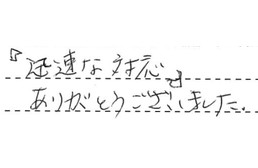 『迅速な対応』
ありがとうございました.